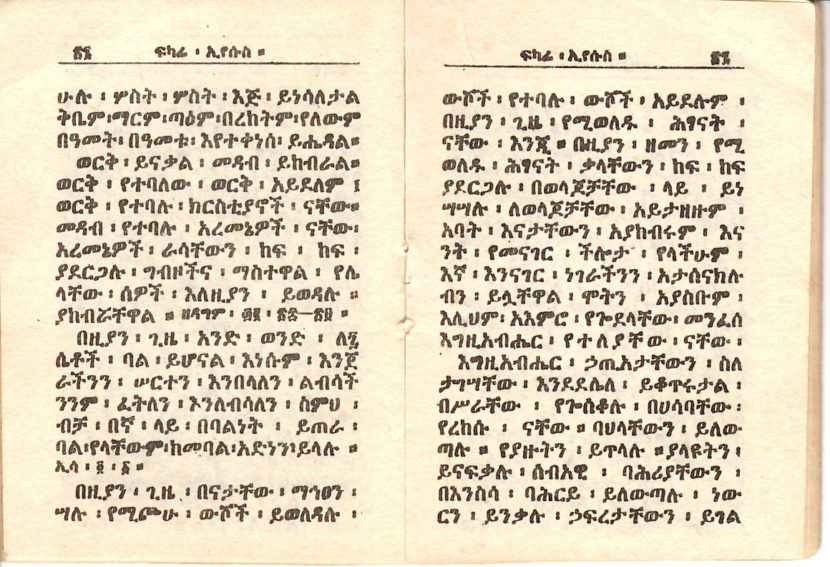 ፍካሬ ፡ ኢየሱስ ።
ሁሉ ፡ ሦስት ፡ ሦስት ፡ እጅ ፡ ይነሳለታል
ቅቤም፡ማርም፡ጣዕም፡በረከትም፡የለውም
በዓመት፡ በዓመቱ፡ እየተቀነሰ፡ ይሔዳል።
ወርቅ ፡ ይናቃል ፡ መዳብ ፡ ይከብራል።
ወርቅ ፡ የተባለው ፡ ወርቅ ፡ አይደለም ፤
ወርቅ ፡ የተባሉ ፡ ክርስቲያኖች ፡ ናቸው።
መዳብ ፡ የተባሉ ፡ አረመኔዎች ፡ ናቸው፡
አረመኔዎች ፡ ራሳቸውን ፡ ከፍ ፡ ከፍ ፡
ያደርጋሉ ፡ ግብዞችና ፡ ማስተዋል ፡ የሌ
ላቸው ፡ ሰዎች ፡ እለዚያን ፡ ይወዳሉ ።
ያከብሯቸዋል ። ዘዳግም ፡
በዚያን ፡ ጊዜ ፡ አንድ ፡ ወንድ ፡ ለ፯
ሴቶች ፡ ባል ፡ ይሆናል ፡ እነሱም ፡ እንጀ
ራችንን ፡ ሠርተን ፡ እንበሳለን ፡ ልብሳች
ንንም ፡ ፈትለን ፡ እንለብሳለን ፡ ስምህ ፡
ብቻ ፡ በኛ ፡ ላይ ፡ በባልነት ፡ ይጠራ ፡
ባል፡የላቸውም፡ከመባል፡አድነን፡ይላሉ ።
ኢሳ ፡ ፬ ፡ ፩ ።
በዚያን ፡ ጊዜ ፡ በናታቸው ፡ ማኅፀን ፡
ሣሉ ፡ የሚጮሁ ፡ ውሾች ፡ ይወለዳሉ ፡
ፍካሬ ፡ ኢየሱስ ።
ውሾች ፡ የተባሉ ፡ ውሾች ፡ አይደሉም ፡
በዚያን ፡ ጊዜ ፡ የሚወለዱ ፡ ሕፃናት ፡
ናቸው ፡ እንጂ ። በዚያን ፡ ዘመን ፡ የሚ
ወለዱ ፡ ሕፃናት ፡ ቃላቸውን ፡ ከፍ ፡ ከፍ
ያደርጋሉ ፡ በወላጆቻቸው ፡ ላይ ፡ ይነ
ሣሣሉ ፡ ለወላጆቻቸው ፡ አይታዘዙም ፡
አባት ፡ እናታቸውን ፡ አያከብሩም ፡ እና
ንት ፡ የመናገር ፡ ችሎታ ፡ የላችሁም ፡
እኛ ፡ እንናገር ፡ ነገራችንን ፡ አታሰናክሉ
ብን ፡ ይሏቸዋል ፡ ሞትን ፡ አያስቡም ፡
እሊህም፡ አእምሮ ፡ የጐደላቸው፡ መንፈሰ
እግዚአብሔር ፡ የተለያቸው ፡ ናቸው ፡
እግዚአብሔር ፡ ኃጢአታቸውን ፡ ስለ
ታገሣቸው ፡ እንደደሴለ ፡ ይቆጥሩታል ፡
ብሥራቸው ፡ የጐሰቆሉ ፡ በሀሳባቸው ፡
የረከሱ ፡ ናቸው ። ባህላቸውን ፡ ይለው
ጣሉ ። የያዙትን ፡ ይጥላሉ ። ያላዩትን ፡
ይናፍቃሉ ፡ ሰብአዊ ፡ ባሕሪያቸውን ፡
በእንስሳ ፡ ባሕርይ ፡ ይለውጣሉ ፡ ነው
ርን ፡ ይንቃሉ ፡ ኃፍረታቸውን ፡ ይገል